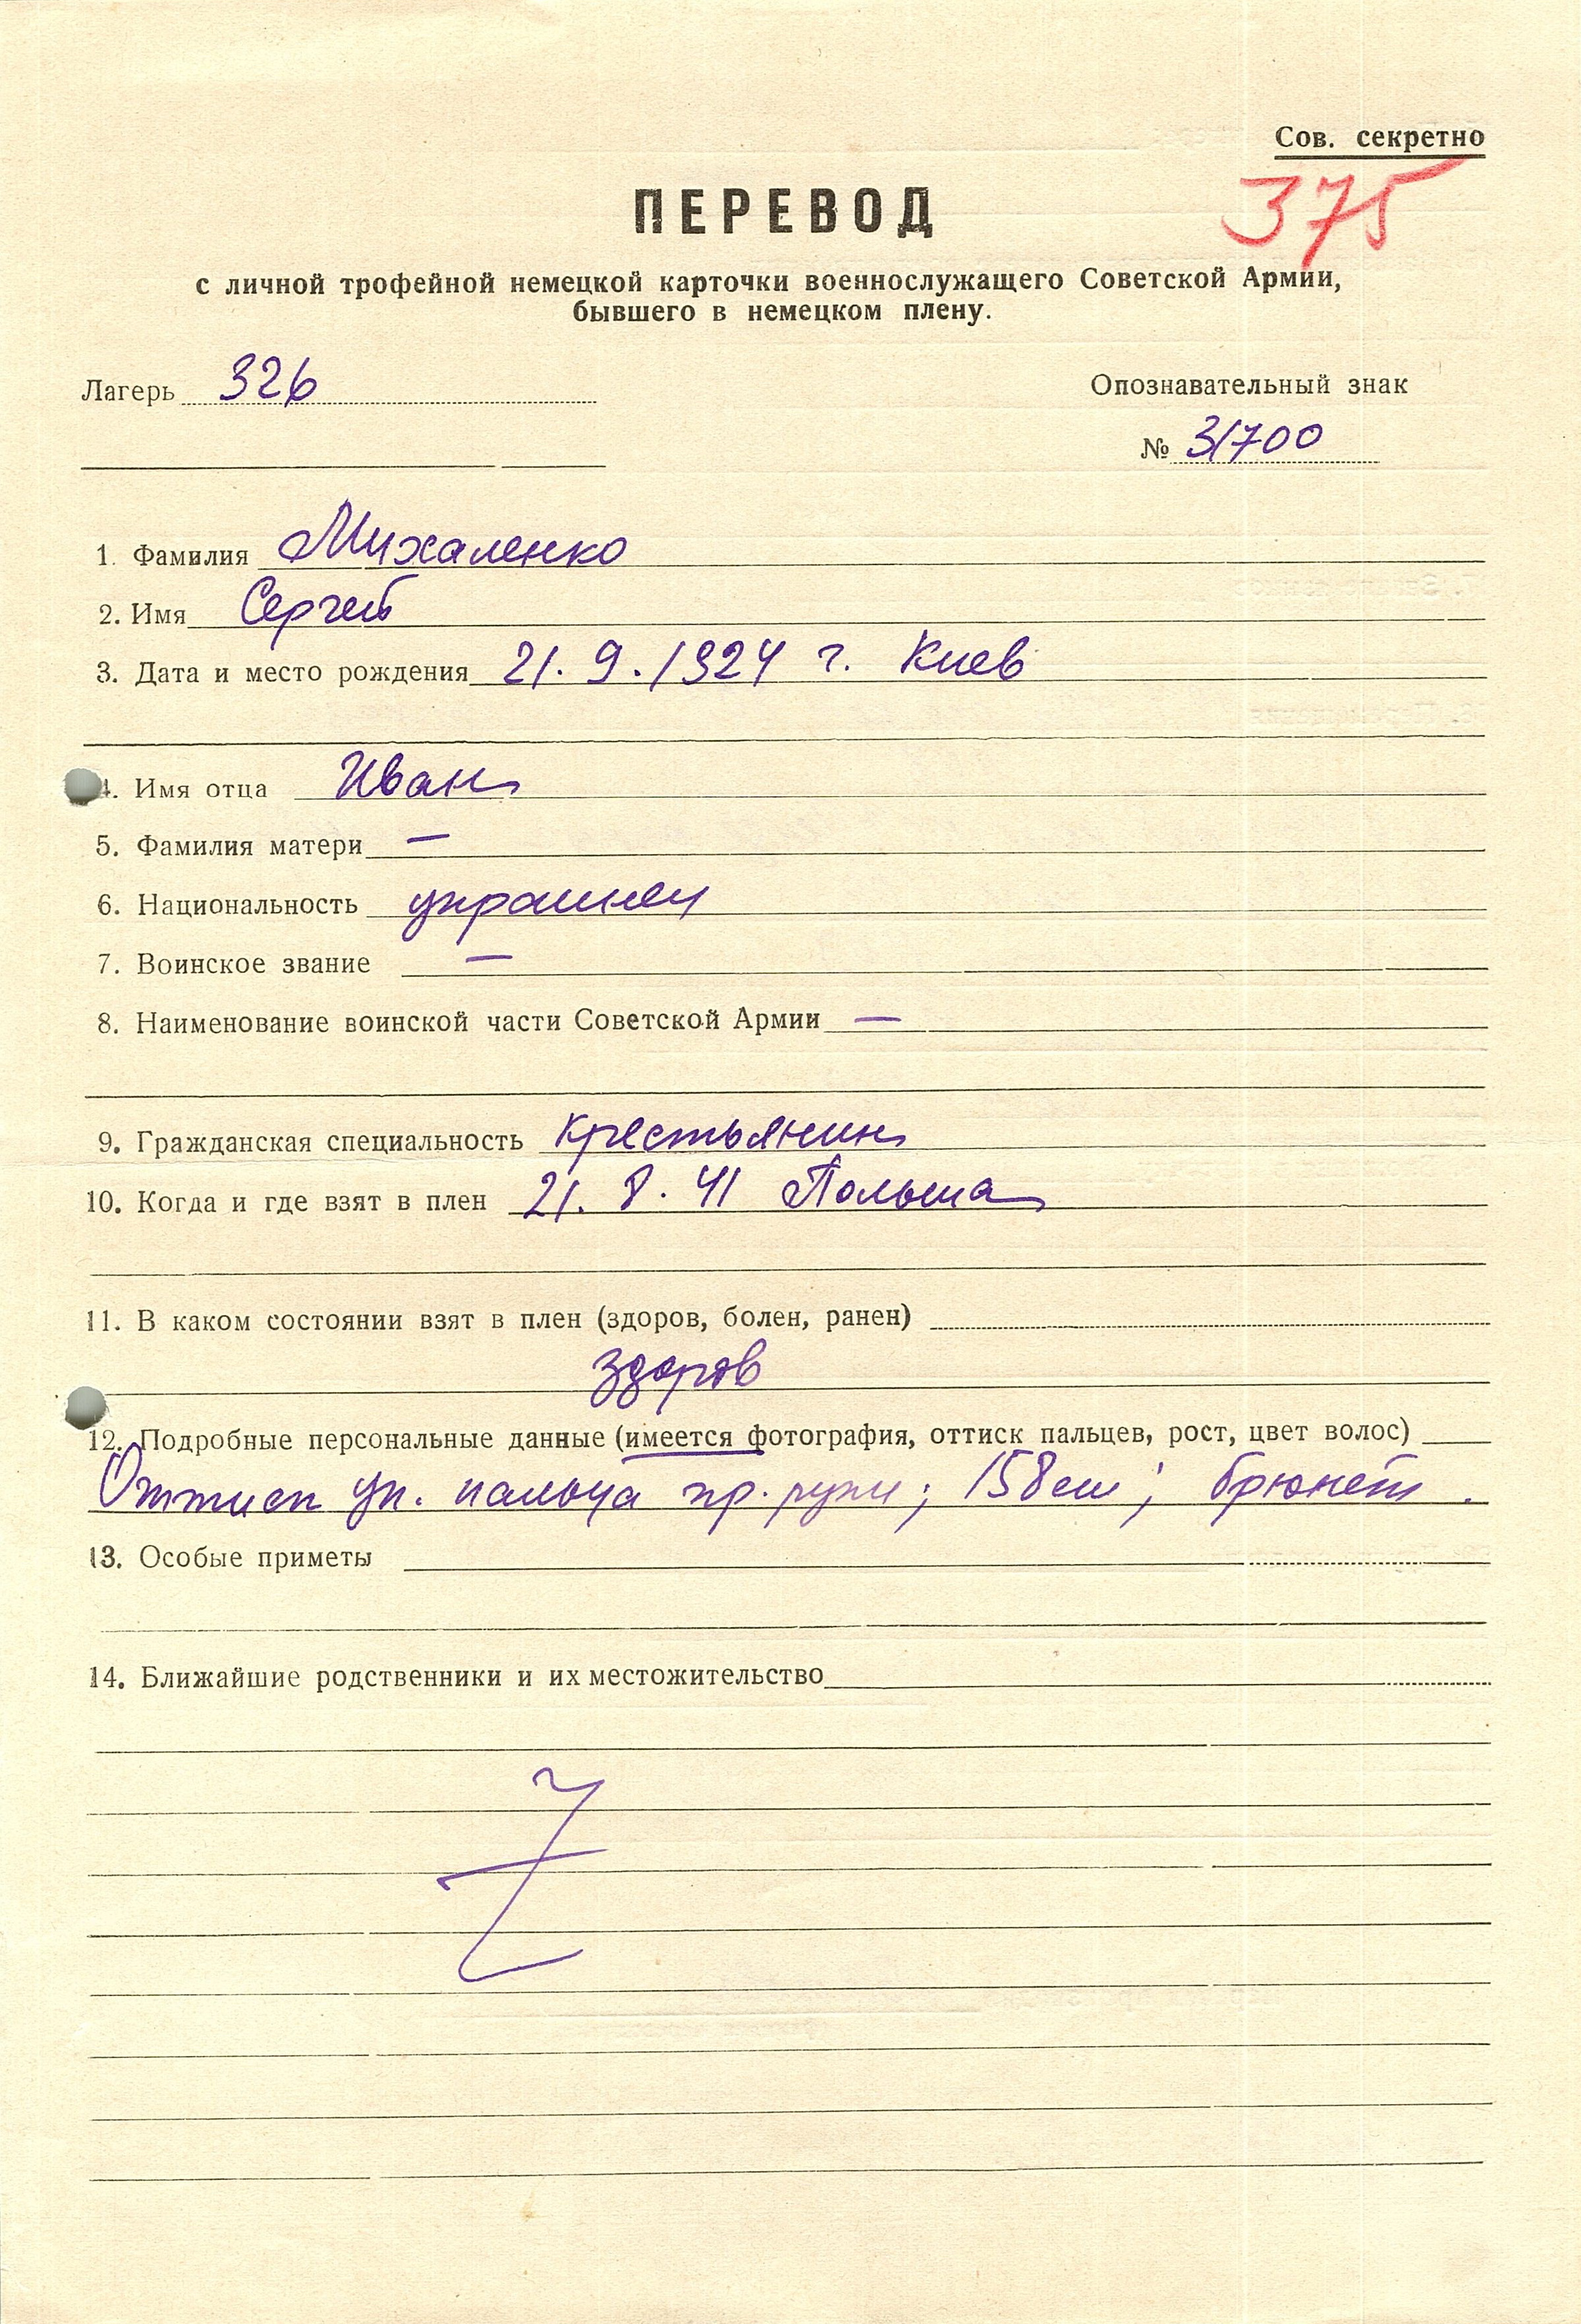 Сов. секретно
375
ПЕРЕВОД
с личной трофейной немецкой карточки военнослужащего Советской Армии,
бывшего в немецком плену.
Лагерь 326
Опознавательный знак
№ 31700
1. Фамилия Михаленко
2. Имя Сергей
3. Дата и место рождения 21.9.1924 г. Киев
4. Имя отца Иван
5. Фамилия матери —
6. Национальность украинец
7. Воинское звание —
8. Наименование воинской части Советской Армии —
9. Гражданская специальность крестьянин
10. Когда и где взят в плен 21.8.41 Польша
11. В каком состоянии взят в плен (здоров, болен, ранен)
здоров
12. Подробные персональные данные (имеется фотография, оттиск пальцев, рост, цвет волос)
Оттиск ук. пальца пр. руки; 158 см; брюнет.
13. Особые приметы
14. Ближайшие родственники и их местожительство